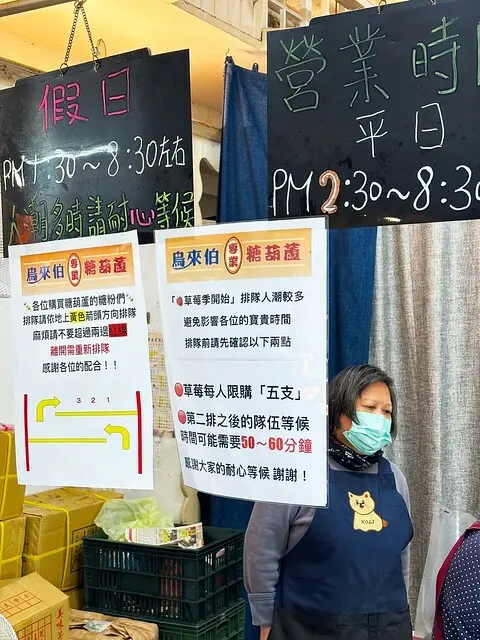 假日
PM 1:30～8:30左右
人潮多時請耐心等候
營業時
平日
PM 2:30～8:30
烏來伯 專業 糖葫蘆
各位購買糖葫蘆的糖粉們
排隊請依地上黃色箭頭方向排隊
麻煩請不要超過兩邊紅線
離開需重新排隊
感謝各位的配合！！
3 2 1
烏來伯 專業 糖葫蘆
「🍓草莓季開始」排隊人潮較多
避免影響各位的寶貴時間
排隊前請先確認以下兩點
🔴草莓每人限購「五支」
🔴第二排之後的隊伍等候
時間可能需要50～60分鐘
感謝大家的耐心等候 謝謝！